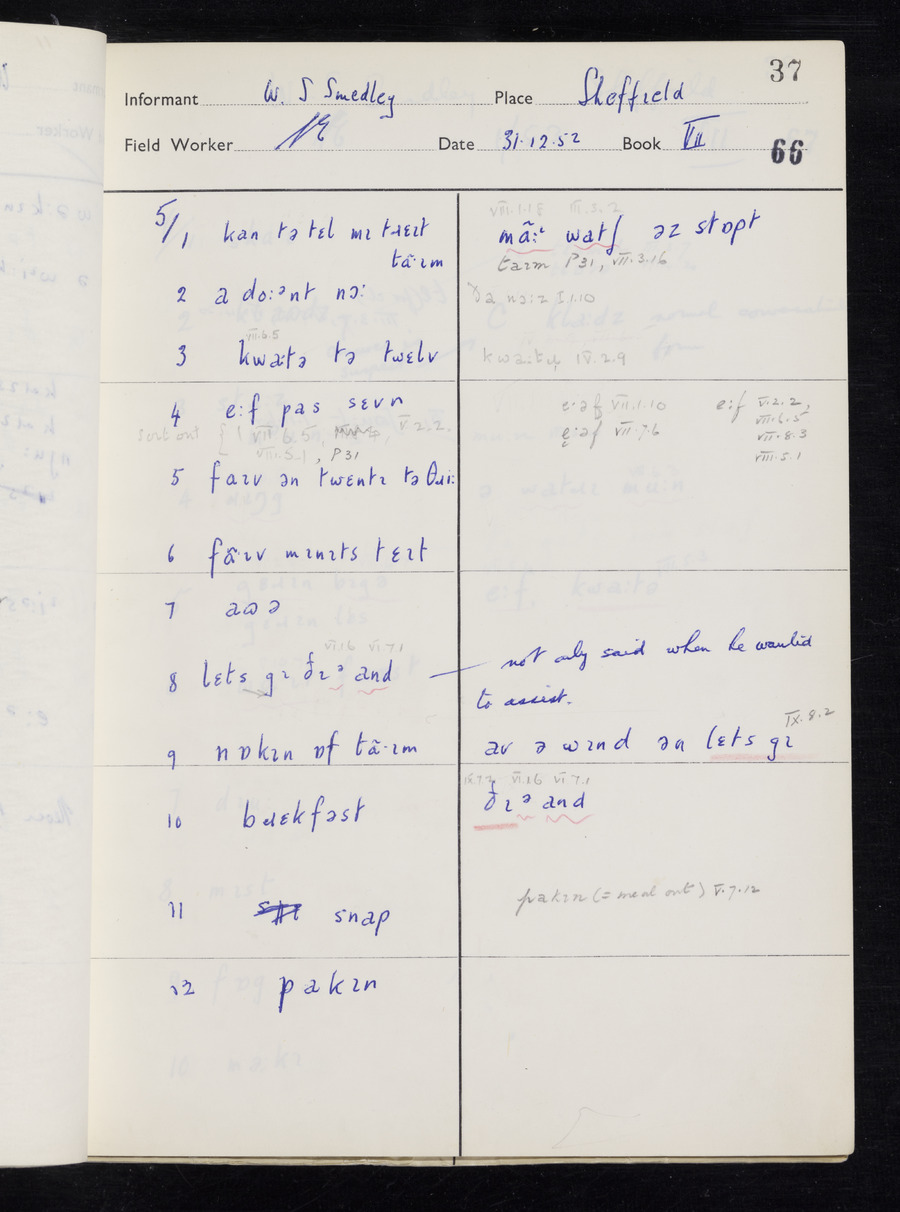 37
Informant W. S Smedley Place Sheffield
Field Worker Date 31.12.52 Book VII
66
5/1 kan tə tɛl mɪ tɹɛɪt
tã·ɪm
VIII.1.18 III.5.2
mã:ɪ watʃ əz stɒpt
taɪm P31, VII.3.16
2 a do:ənt nɔ:
ða nɔ:z I.1.10
VII.6.5
3 kwa:tə tə twɛlv
IV.2.9
4 e:f pas sɛvn
sort out { VII 6.5, V.2.2.
VIII.5.1, P31
e:əf VII.1.10
e:əf VII.7.6
e:f V.2.2,
VII.6.5
VII.8.3
VIII.5.1
5 faɪv ən twɛntɪ tə θɹi:
6 fã·ɪv mɪnɪts tɛɪt
7 aʊə
VI.16 VI 7.1
8 lɛts gɪ ðɪə and
not only said when he wanted
to assist.
9 nɒkɪn ɒf tã·ɪm
IX.8.2
av ə wɪnd ən lɛts gɪ
VI.16 VI 7.1
ðɪə and
10 bɹɛkfəst
11 snap
pakɪn (= meal out) V.7.12
12 pakɪn